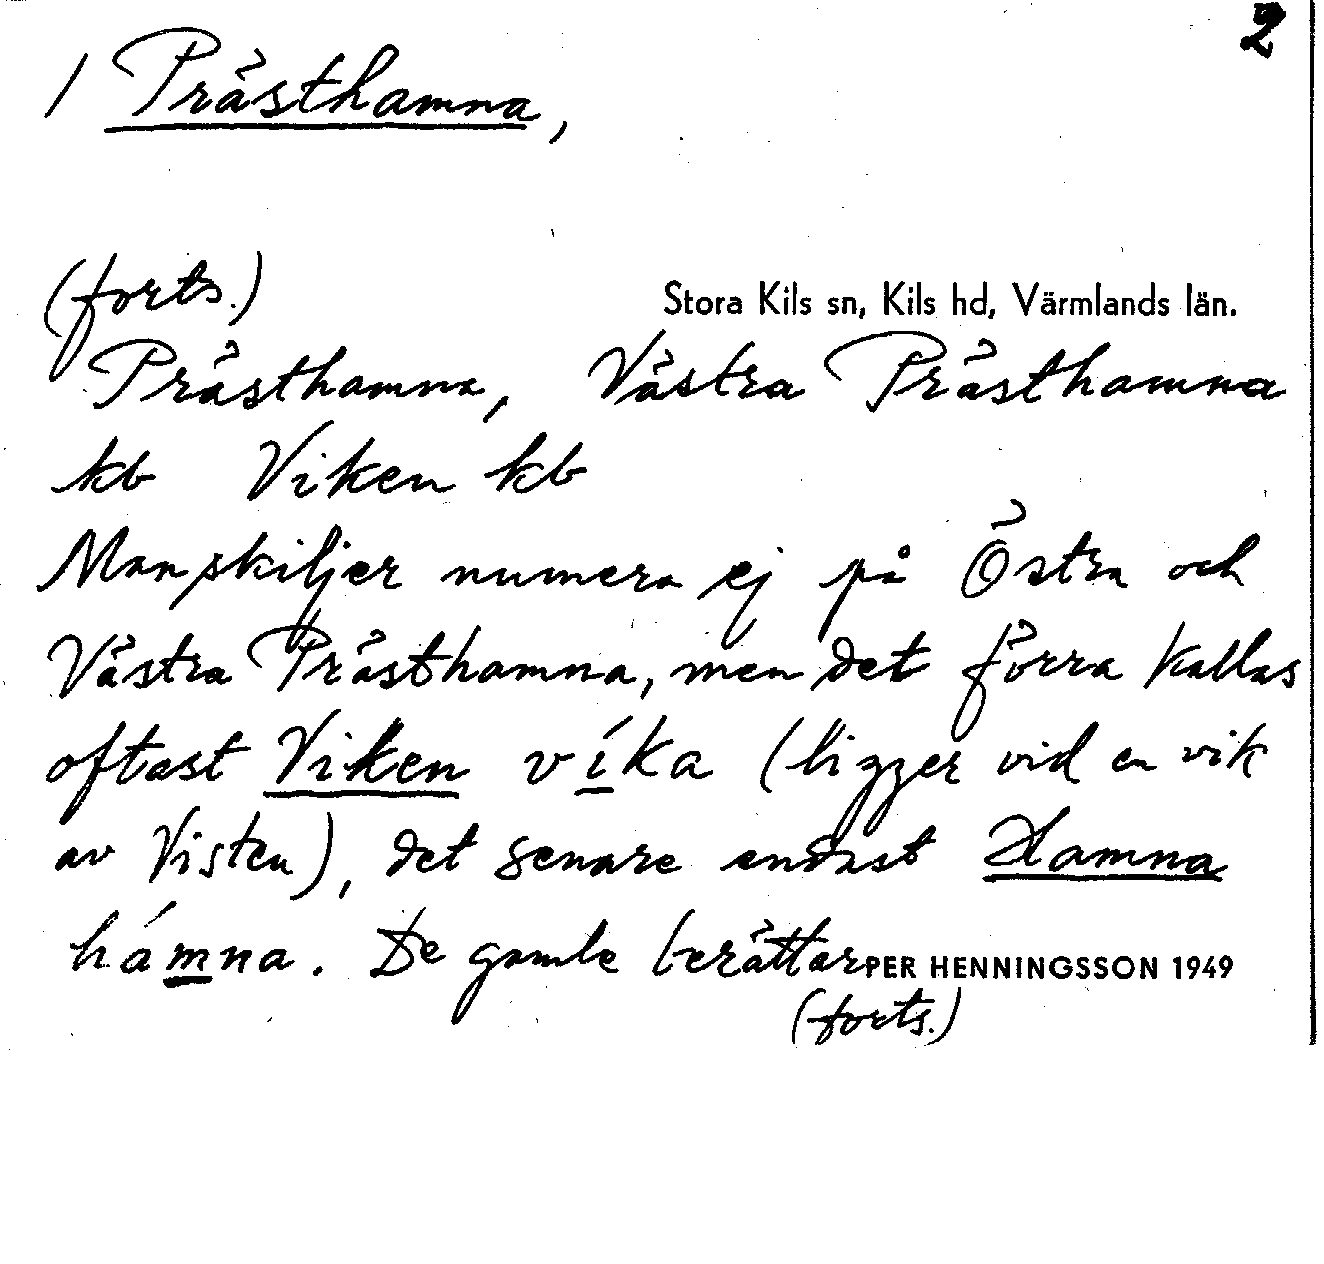 2
/ Prästhamna,
(forts.)
Stora Kils sn, Kils hd, Värmlands län.
Prästhamna, Västra Prästhamna
kb Viken kb
Man skiljer numera ej på Östra och
Västra Prästhamna, men det förra kallas
oftast Viken víka (ligger vid en vik
av Visten), det senare endast Hamna
hámna. De gamle berättar
PER HENNINGSSON 1949
(forts.)